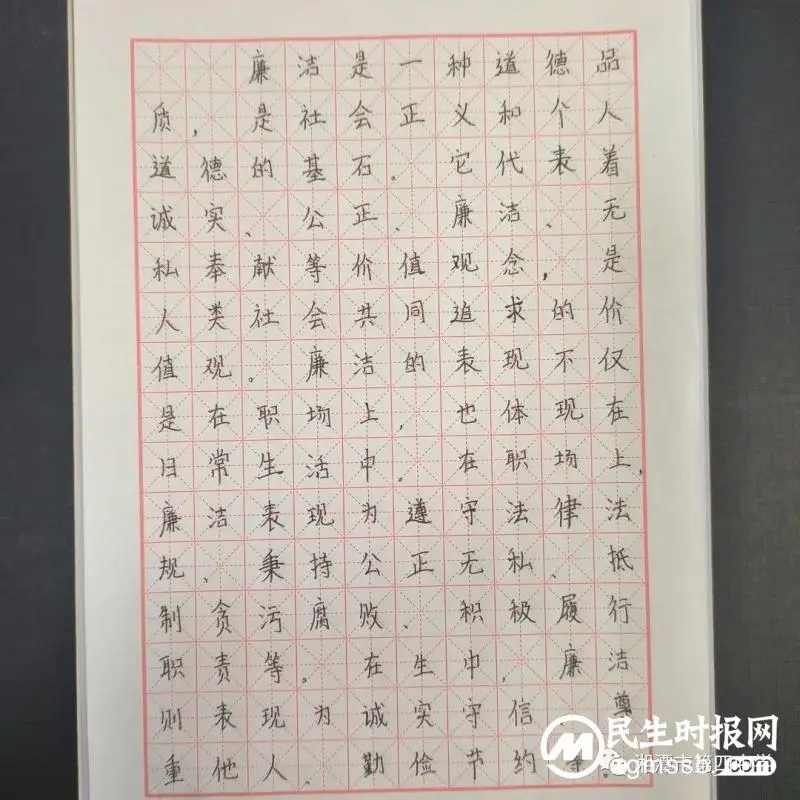 廉洁是一种道德品
质，是社会正义和个人
道德的基石。它代表着
诚实、公正、廉洁、无
私奉献等价值观念，是
人类社会共同追求的价
值观。廉洁的表现不仅
是在职场上，也体现在
日常生活中。在职场上，
廉洁表现为遵守法律法
规、秉持公正无私、抵
制贪污腐败、积极履行
职责等。在生中，廉洁
则表现为诚实守信、尊
重他人、勤俭节约等。
民生时报网